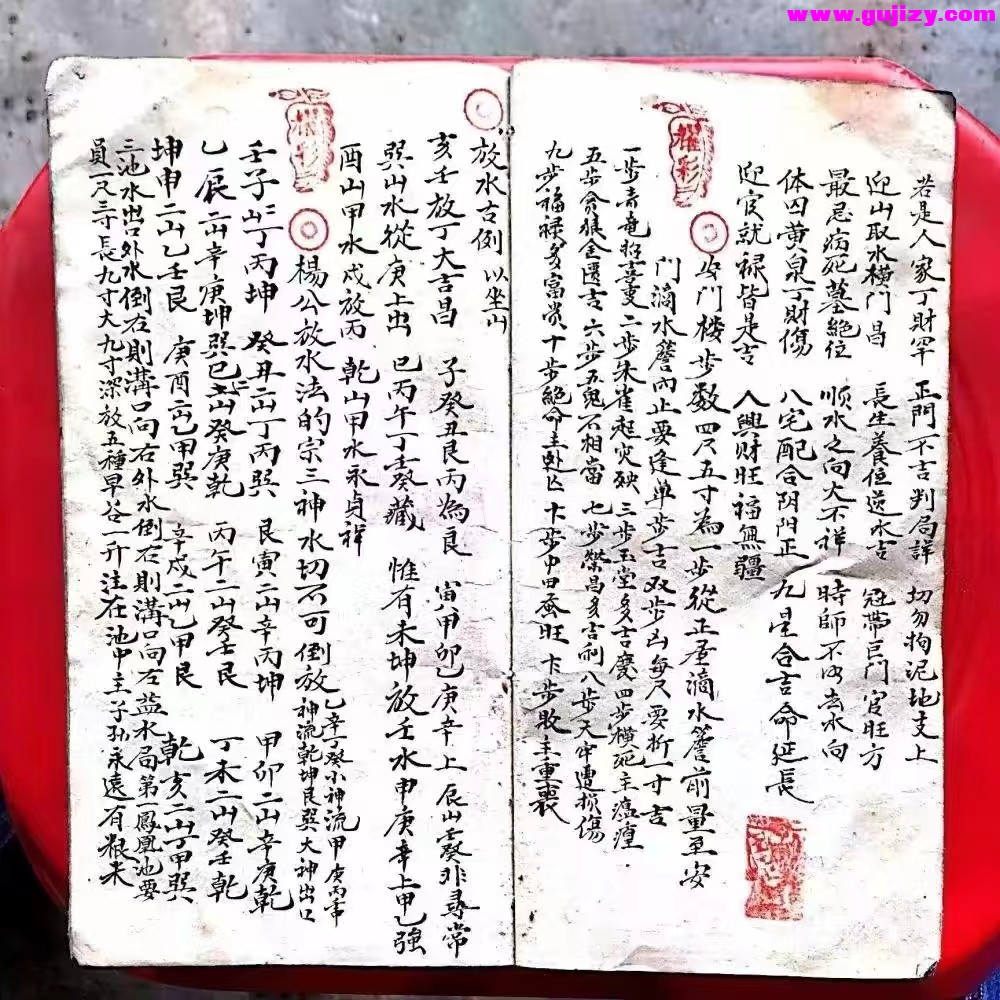 www.gujizy.com
若是人家丁財罕 正門不吉判局詳 切勿拘泥地支上
迎山取水橫門昌 長生養位逆水吉 冠帶巨門官旺方
最忌病死墓絕位 順水之向大不祥 時師不留去水向
体四黃泉丁財傷 八宅配合阴阳正 九星合吉命延長
迎官就祿皆是吉 人興財旺福無疆
耀彩
步門楼步数四尺五寸為一步從正屋滴水簷前量至安
門滴水簷內止要逢单步吉双步凶每尺要折一寸吉
一步青竜招喜慶 二步朱雀起灾殃 三步玉堂多吉慶 四步横死主瘟瘟
五步貪狼金匱吉 六步五鬼不相當 七步榮昌多吉利 八步天牢遭损傷
九步福禄多富贵 十步絕命主卧亡 十步中田蚕旺 十步敗主重喪
放水古例 以坐山
亥壬放丁大吉昌 子癸丑艮丙為良 寅甲卯乙庚辛上 辰山壬癸非尋常
巽山水從庚上出 巳丙午丁壬癸藏 惟有未坤放壬水 申庚辛上甲乙強
酉山甲水戌放丙 乾山甲水永貞祥
耀彩
楊公放水法的宗三神水切不可倒放 乙辛丁癸小神流甲庚丙壬中
神流乾坤艮巽大神出口
壬子二山丁丙坤 癸丑二山丁丙巽 艮寅二山辛丙坤 甲卯二山辛庚乾
乙辰二山辛庚坤 巽巳二山癸庚乾 丙午二山癸壬艮 丁未二山癸壬乾
坤申二山乙壬艮 庚酉二山乙甲巽 辛戌二山乙甲艮 乾亥二山丁甲巽
三池水出口外水倒右則溝口向右外水倒左則溝口向左益水局第一鳳凰池要
員一尺三寸長九寸大九寸深放五種早谷一升注在池中主子孙永遠有粮米